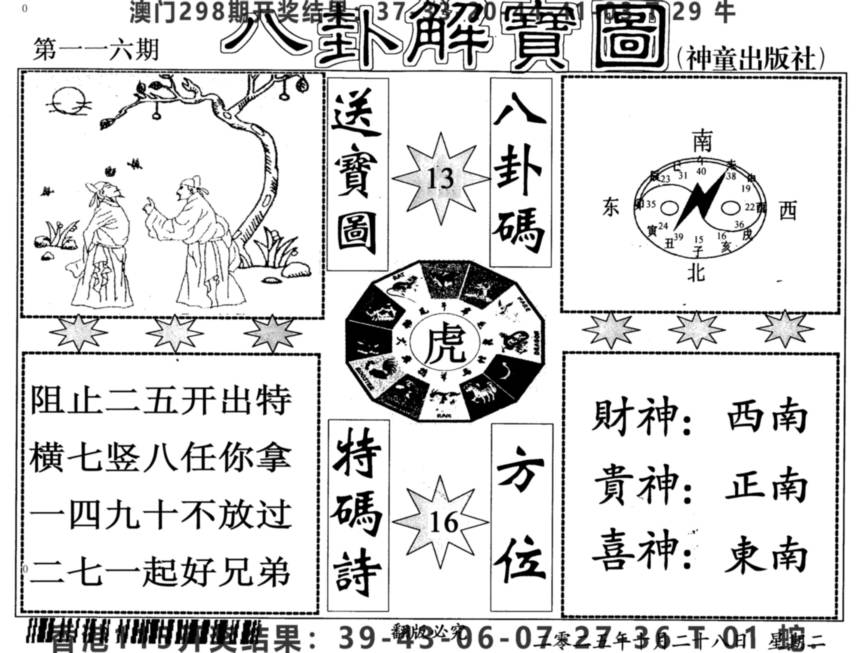 澳门298期开奖结果：37
29 牛
八卦解寶圖
第一一六期
(神童出版社)
送寶圖
13
八卦碼
南
东
西
北
巳
午
未
申
酉
戌
亥
子
丑
寅
卯
辰
31
40
38
19
22
36
16
15
39
24
35
23
虎
阻止二五开出特
横七竖八任你拿
一四九十不放过
二七一起好兄弟
特碼詩
16
方位
財神：西南
貴神：正南
喜神：東南
翻版必究
香港115开奖结果：39-43-06-07-27-36 T 01 蛇
二零二五年十月二十八日 星期二